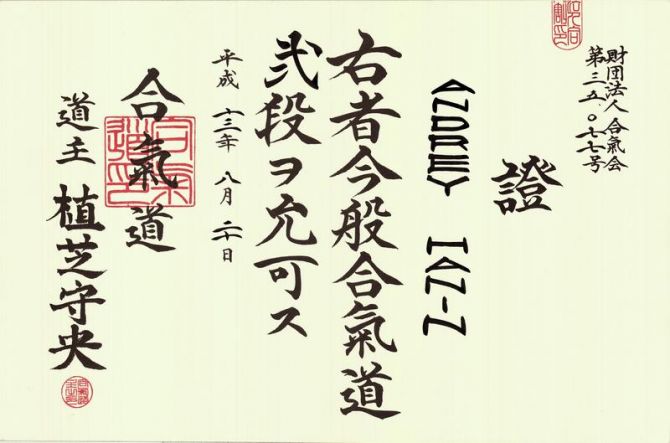 財団法人 合氣会
第三五.〇七七号
證
ANDREY HANIN
右者今般合氣道
弐段ヲ允可ス
平成 十三年 八月 二十日
合氣道
道主 植芝守央